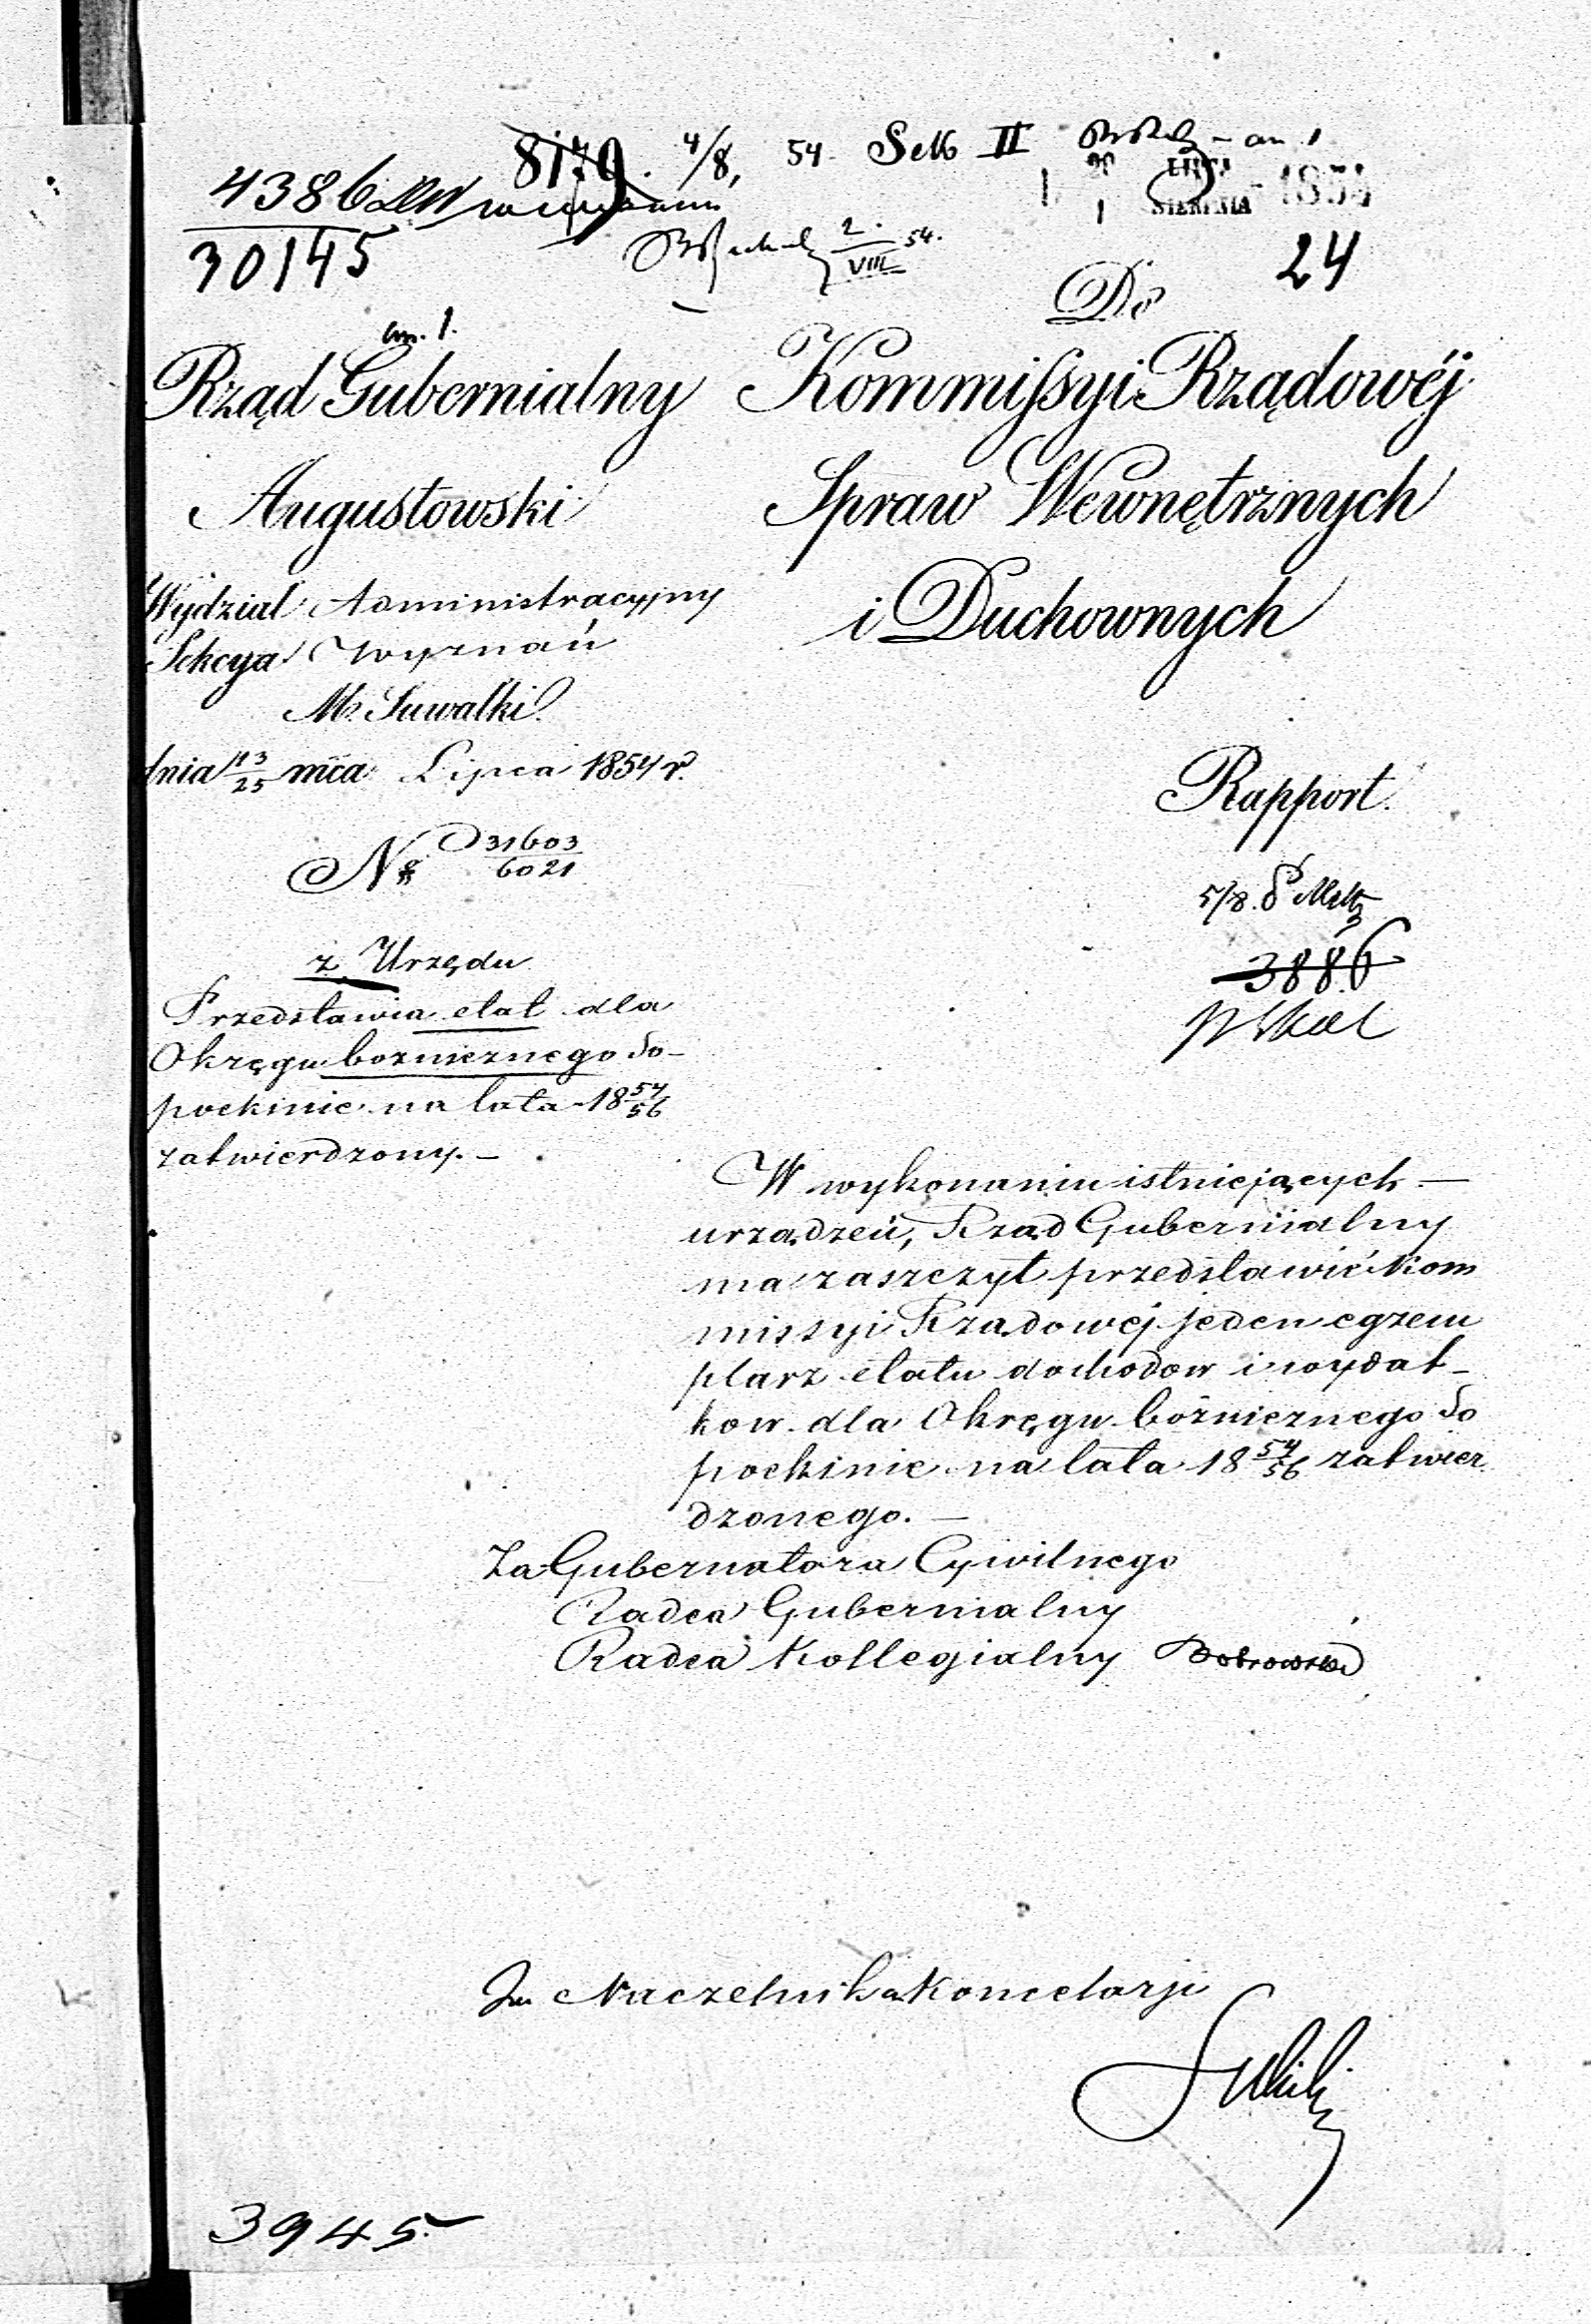 8179. 4/8, 54. II an. 1
4386
30145
2. VIII 54.
LIPCA
1 SIERPNIA 1854
24
an. 1.
Do
Rząd Gubernialny
Augustowski
Kommissyi Rządowéj
Spraw Wewnętrznych
i Duchownych
Wydział Administracyjny
Sekcya Wyznań
M. Suwałki.
dnia 13/25 mca Lipca 1854 r.
N 31603/6021
Rapport.
5/8.
3886
z Urzędu
Przedstawia etat dla
Okręgu bożnicznego So-
pockinie na lata 18 54/56
zatwierdzony. -
W wykonaniu istniejących -
urządzeń, Rząd Gubernialny
ma zaszczyt przedstawić Kom
missyi Rządowéj jeden egzem
plarz etatu dochodow i wydat-
kow dla Okręgu bożnicznego So
pockinie na lata 18 54/56 zatwier
dzonego. -
Za Gubernatora Cywilnego
Radca Gubernialny
Radca Kollegialny Dobrowolski
Naczelnika Kancelarji
3945.